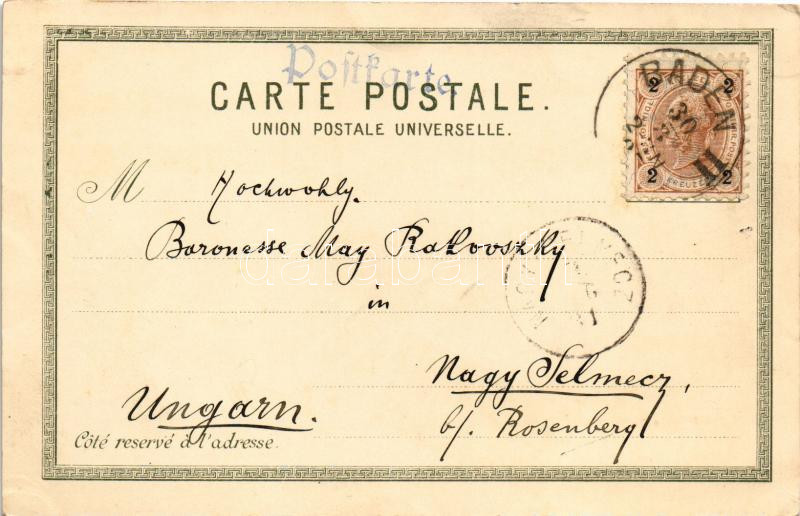 Postkarte
CARTE POSTALE.
UNION POSTALE UNIVERSELLE.
BADEN
30
11
2 2
KREUZER
2 2
M Hochwohlg.
Baronesse May Rakovszky
in
Nagy Selmecz,
b/. Rosenberg
Ungarn.
Côté reservé à l'adresse.
darabanth